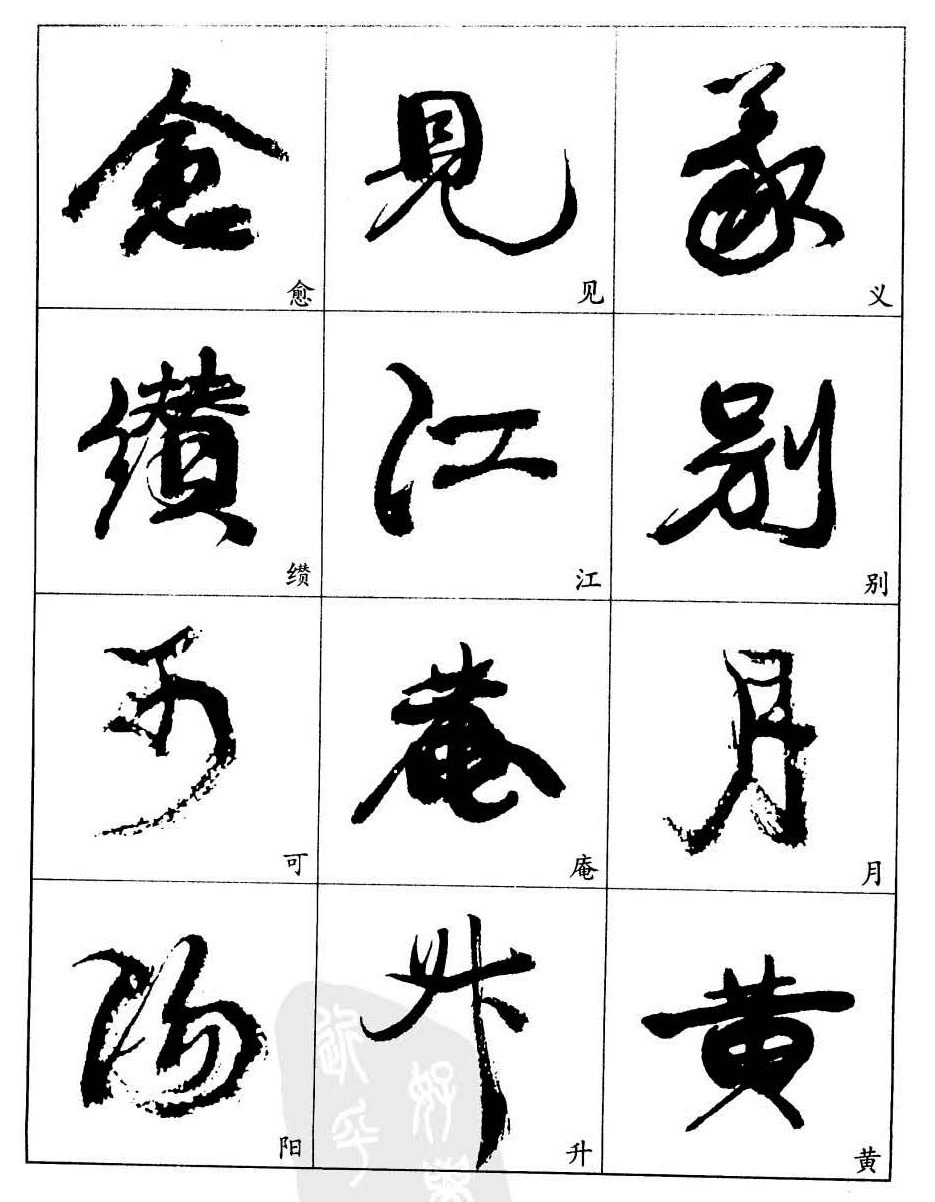 愈 見 義
愈 见 义
纉 江 别
缵 江 别
可 菴 月
可 庵 月
陽 升 黄
阳 升 黄